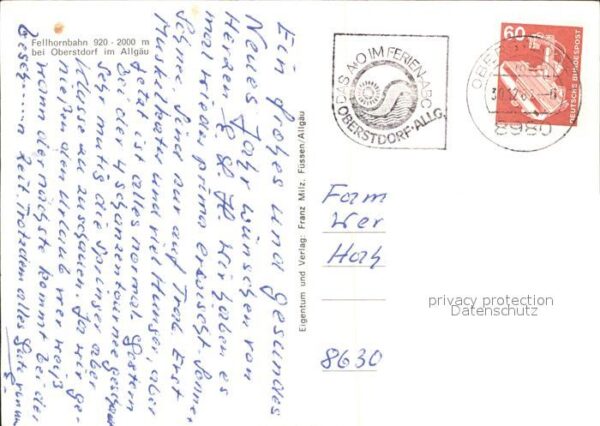 Fellhornbahn 920 - 2000 m
bei Oberstdorf im Allgäu
Ein frohes und gesundes
Neues Jahr wünschen von
Herzen
Wir haben es
mal wieder prima erwischt Sonne,
Schnee. Sind nur auf Trab Erst
Muskelkater und viel Hunger, aber
jetzt ist alles normal. Gestern
bei der 4 Schanzentournee
Sehr mutig die Springer aber
Klasse zuzuschauen. Ja wir ge-
nießen den Urlaub wer weiß
wann die nächste kommt bei der
Zeit. Trotzdem alles Gute
Eigentum und Verlag: Franz Milz, Füssen/Allgäu
DAS NO IM FERIEN-ABC
OBERSTDORF-ALLG.
8980
60
DEUTSCHE BUNDESPOST
Fam
Wer
8630
privacy protection
Datenschutz